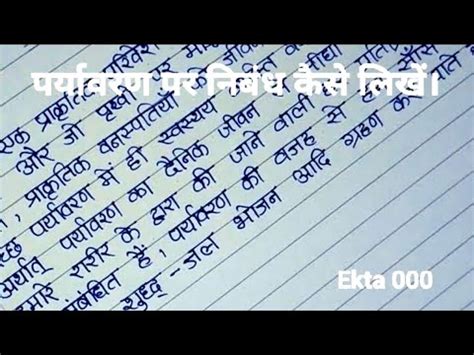 पर्यावरण पर निबंध कैसे लिखें।
एक प्राकृतिक परिवेश
और जो पृथ्वी पर
प्राकृतिक वनस्पतियों जीवन
पर्यावरण में ही स्वस्थ्य जीवन
अर्थात् पर्यावरण का दैनिक जीवन
हमारे शरीर के द्वारा की जाने वाली
संबंधित है, पर्यावरण की वजह से हम साँस
शुद्ध-जल भोजन आदि ग्रहण कर पाते
Ekta 000